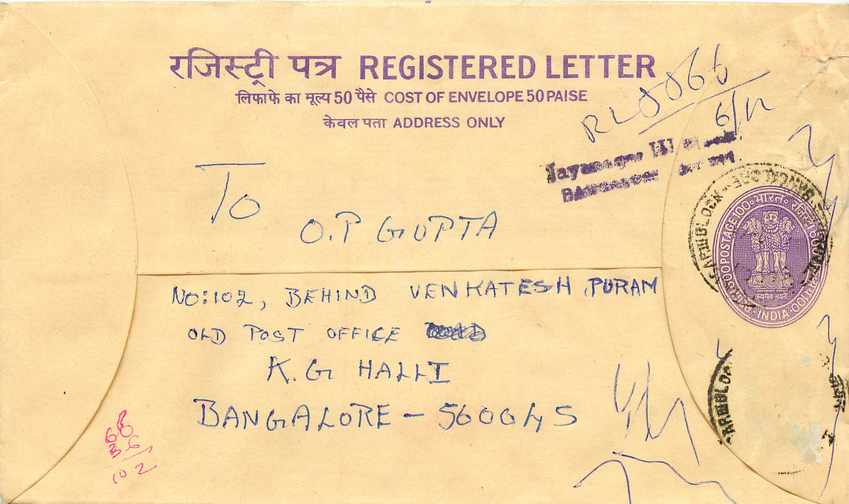 रजिस्ट्री पत्र REGISTERED LETTER
लिफाफे का मूल्य 50 पैसे COST OF ENVELOPE 50 PAISE
केवल पता ADDRESS ONLY
RL0066
6/12
Jayanagar III
To
O.P GUPTA
NO:102, BEHIND VENKATESH PURAM
OLD POST OFFICE
K.G HALLI
BANGALORE - 560045
भारत
INDIA